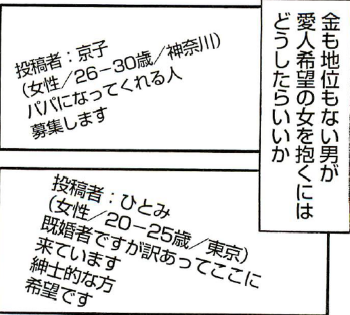 金も地位もない男が
愛人希望の女を抱くには
どうしたらいいか
投稿者：京子
（女性／26－30歳／神奈川）
パパになってくれる人
募集します
投稿者：ひとみ
（女性／20－25歳／東京）
既婚者ですが訳あってここに
来ています
紳士的な方
希望です